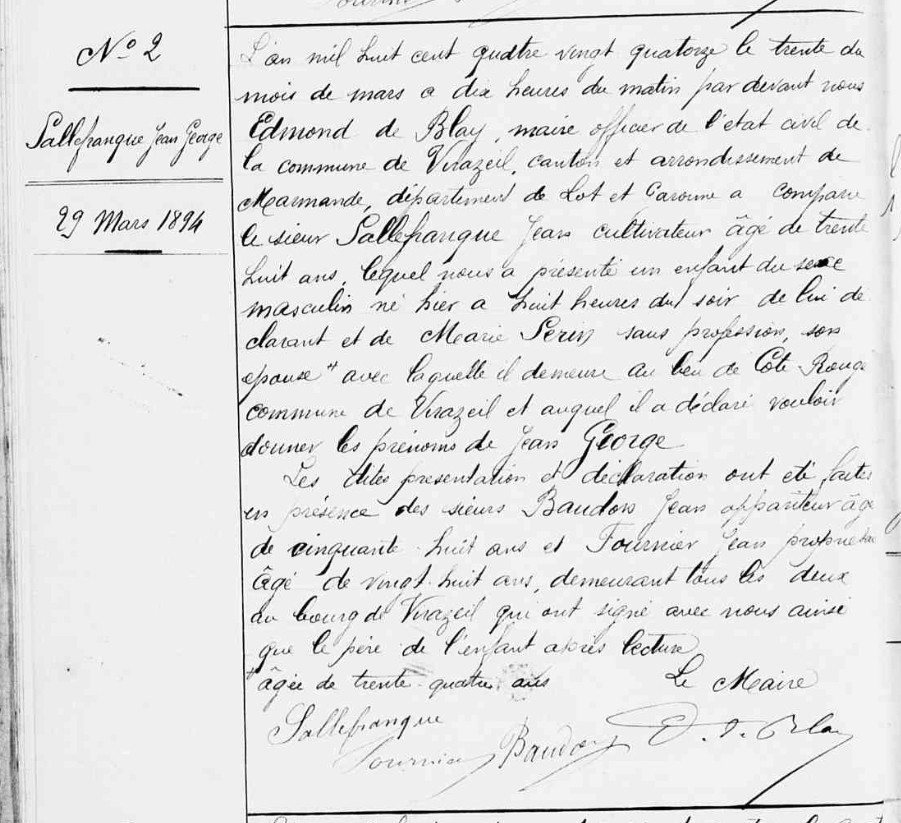 N° 2
Sallefranque Jean George
29 Mars 1894
L'an mil huit cent quatre vingt quatorze le trente du
mois de mars a dix heures du matin par devant nous
Edmond de Blay, maire officier de l'etat civil de
la commune de Virazeil, canton et arrondissement de
Marmande, département de Lot et Garonne a comparu
le sieur Sallefranque Jean cultivateur âgé de trente
huit ans, lequel nous a présenté un enfant du sexe
masculin né hier a huit heures du soir de lui dé
clarant et de Marie Perin sans profession, son
epouse + avec laquelle il demeure au lieu de Côte Rouge
commune de Virazeil et auquel il a déclaré vouloir
donner les prénoms de Jean George
Les dites presentation et déclaration ont eté faites
en présence des sieurs Baudon Jean appariteur âgé
de cinquante huit ans et Fournier Jean proprietaire
âgé de vingt-huit ans, demeurant tous les deux
au bourg de Virazeil qui ont signé avec nous ainsi
que le père de l'enfant après lecture
+ âgée de trente quatre ans Le Maire
Sallefranque
Fournier Baudon E. d. Blay